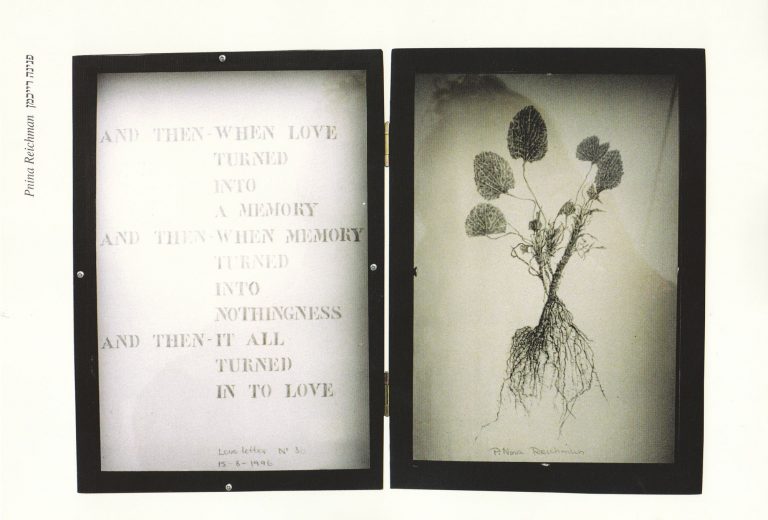 פנינה רייכמן
Pnina Reichman
AND THEN-WHEN LOVE
TURNED
INTO
A MEMORY
AND THEN-WHEN MEMORY
TURNED
INTO
NOTHINGNESS
AND THEN-IT ALL
TURNED
IN TO LOVE
Love letter No 3
15-8-1996
P. Nina Reichman